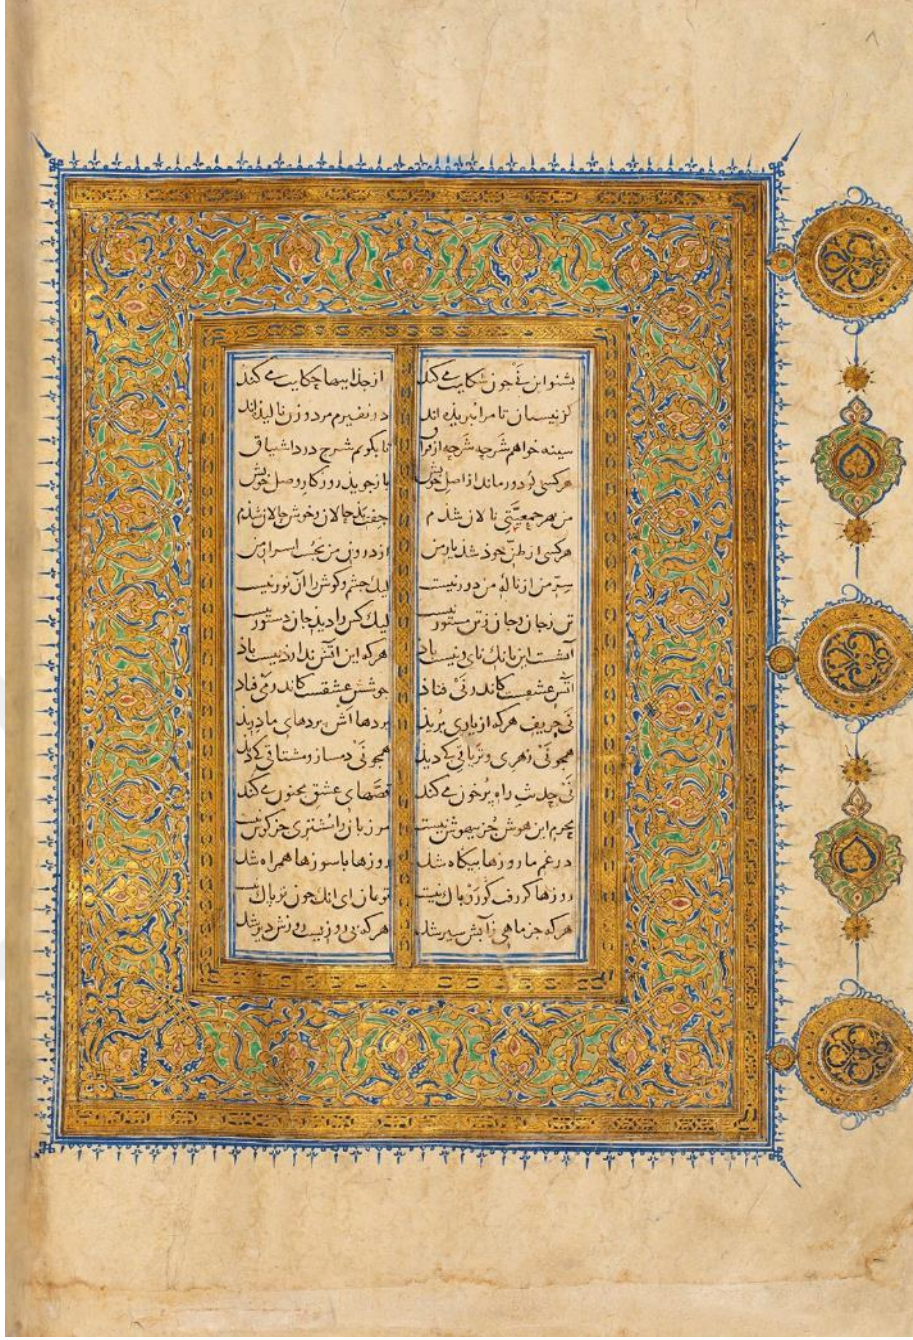 ٨
بشنو این نی چون شکایت می کند از جذاییها حکایت می کند
کز نیستان تا مرا ببریذه اند در نفیرم مرد و زن نالیذه اند
سینه خواهم شرحه شرحه از فراق تا بگویم شرح درد اشتیاق
هر کسی کو دور ماند از اصل خویش باز جویذ روزگار وصل خویش
من بهر جمعیّتی نالان شذم جفت بذحالان و خوش حالان شذم
هر کسی از ظنّ خوذ شذ یار من از درون من نجست اسرار من
سرّ من از نالهٔ من دور نیست لیک چشم و گوش را آن نور نیست
تن ز جان و جان ز تن مستور نیست لیک کس را دیذ جان دستور نیست
آتشست این بانگ نای و نیست باذ هرکه این آتش ندارذ نیست باذ
آتش عشقست کاندر نی فتاذ جوشش عشقست کاندر می فتاذ
نی حریف هرکه از یاری بریذ پردهااش پردهای ما دریذ
همچو نی زهری و تریاقی که دیذ همچو نی دمساز و مشتاقی که دیذ
نی حدیث راه پر خون می کند قصّهای عشق مجنون می کند
محرم این هوش جز بیهوش نیست مر زبان را مشتری جز گوش نیست
در غم ما روزها بیگاه شد روزها با سوزها همراه شد
روزها گر رفت گو رو باک نیست تو بمان ای آنک چون تو پاک نیست
هرکه جز ماهی ز آبش سیر شد هرکه بی روزیست روزش دیر شد